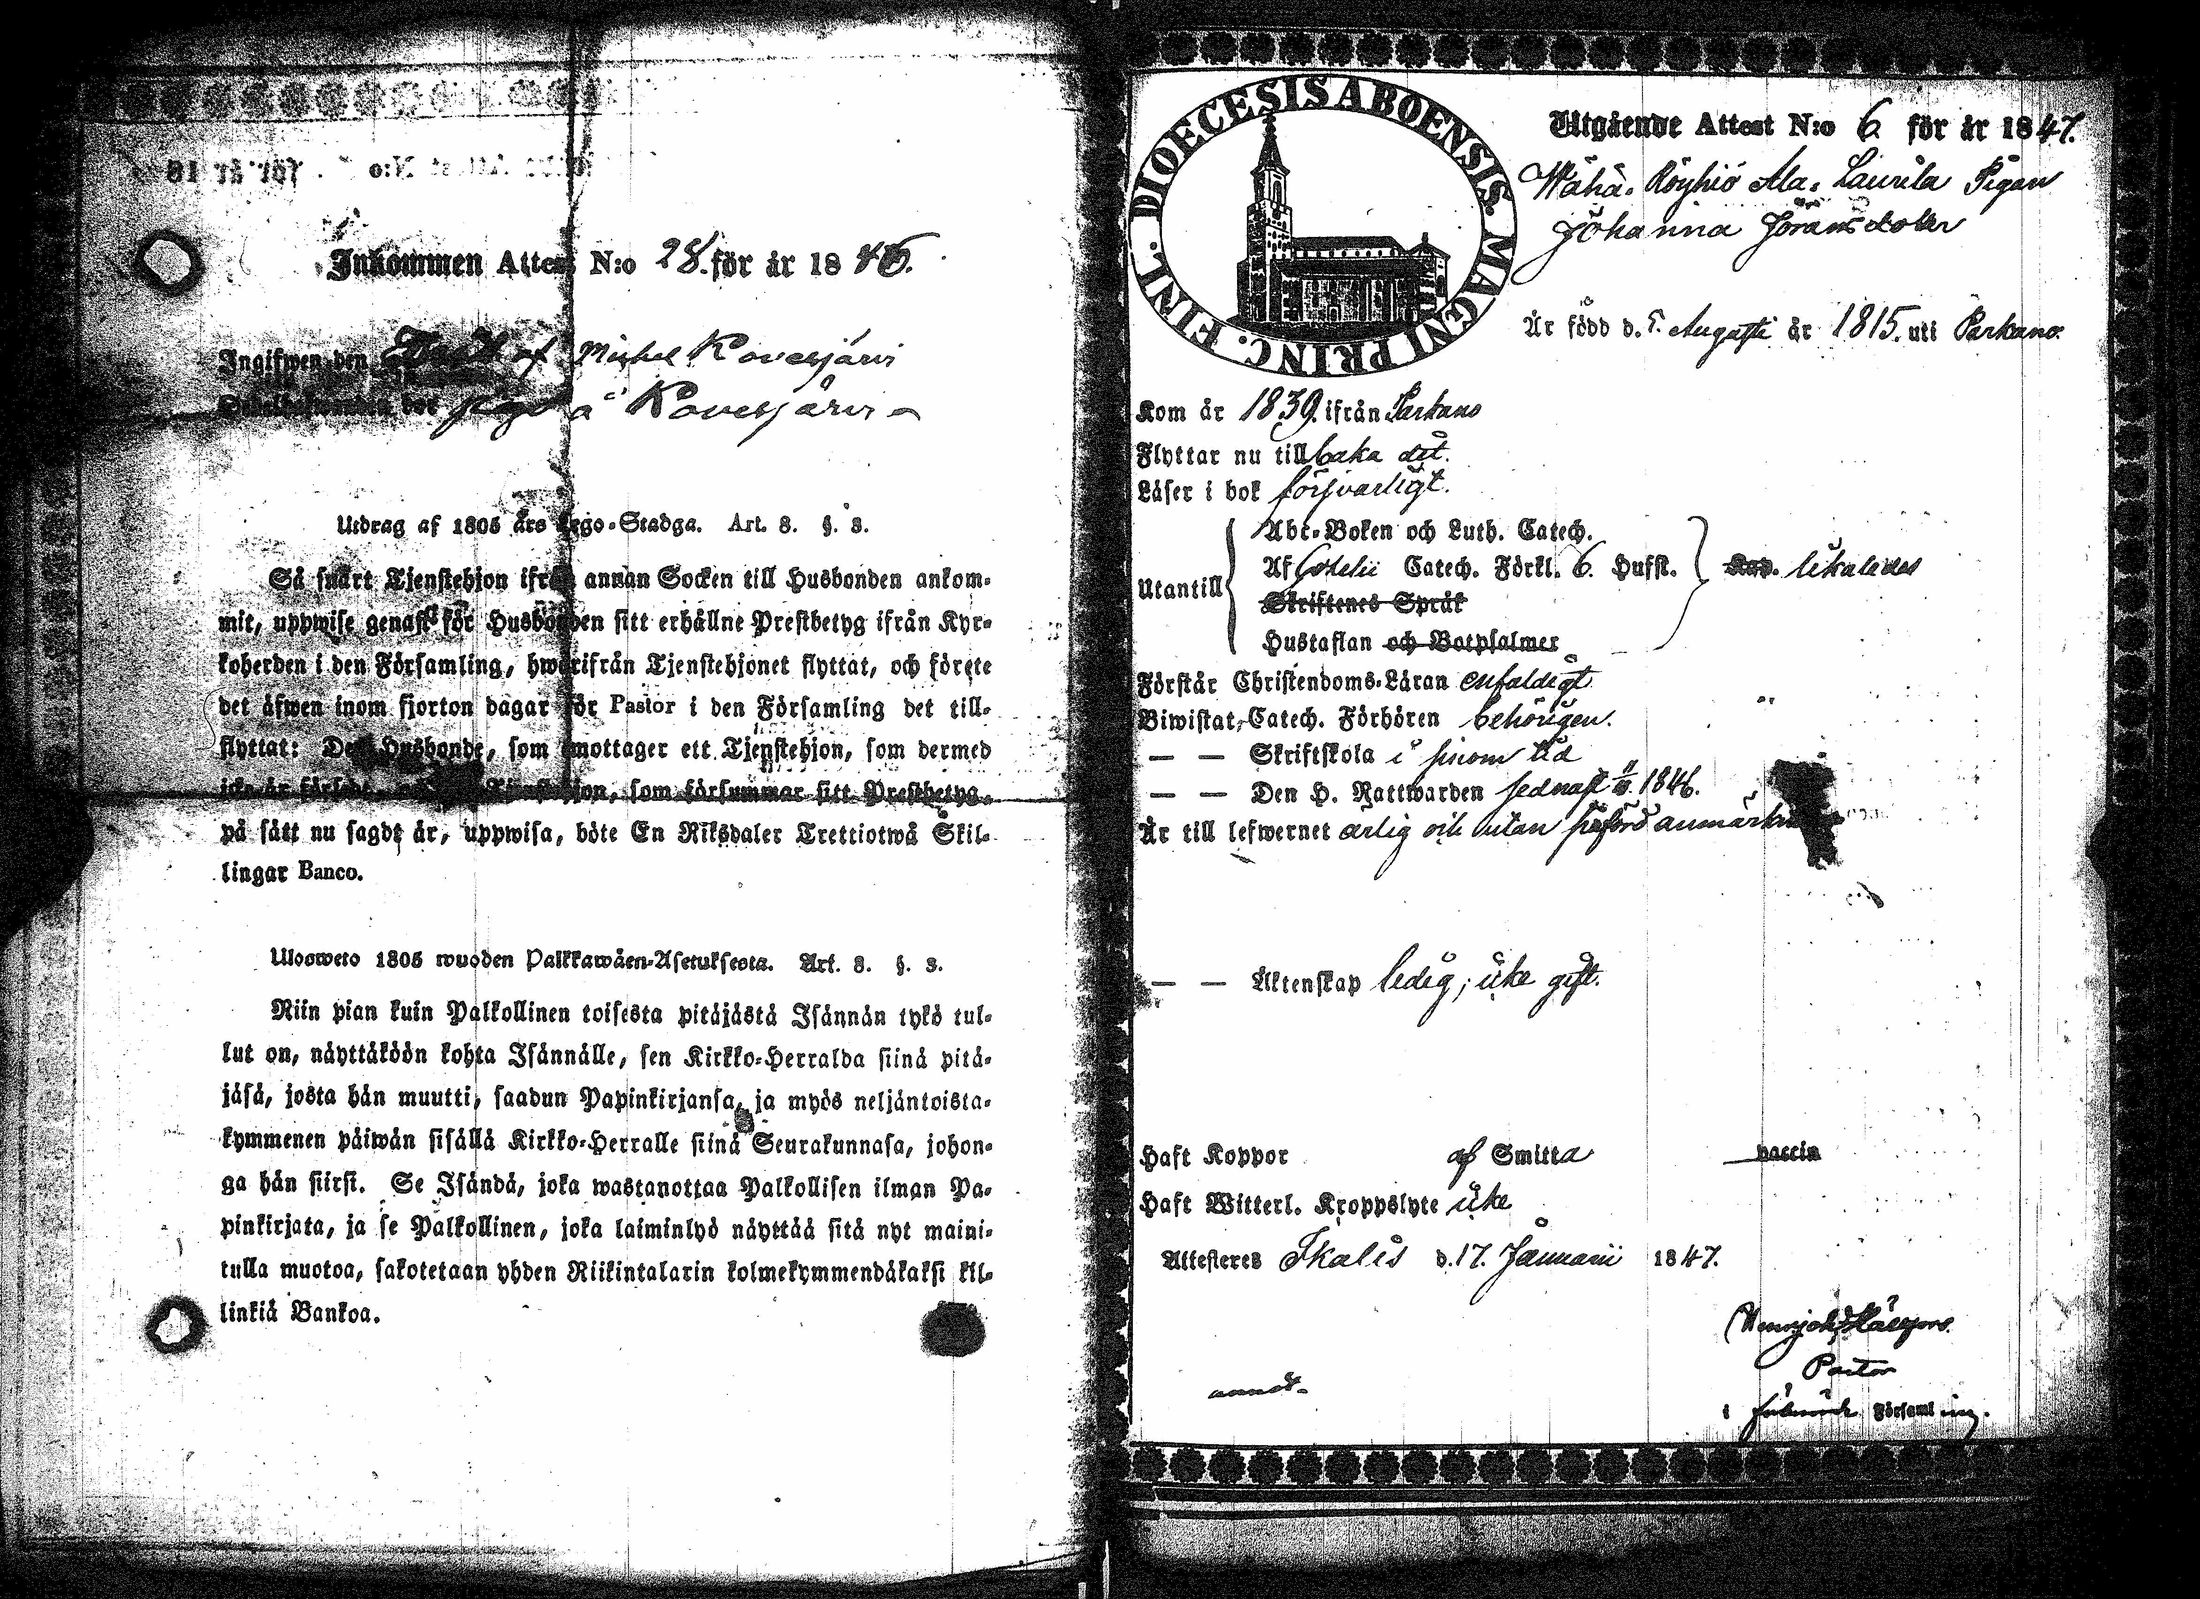 Inkommen Attest N:o 28. för år 1846.
Ingifwen den af Michel Kovesjärvi
å Kovesjärvi
Utdrag af 1805 års Lego-Stadga. Art. 8. §. 3.
Så snart Tjenstehjon ifrån annan Socken till Husbonden ankom-
mit, uppwise genast för Husbonden sitt erhållne Prestbetyg ifrån Kyr-
koherden i den Församling, hwarifrån Tjenstehjonet flyttat, och förete
det äfwen inom fjorton dagar för Pastor i den Församling det till-
flyttat: Den Husbonde, som emottager ett Tjenstehjon, som dermed
icke är försedt, Tjenstehjon, som försummar sitt Prestbetyg,
på sätt nu sagdt är, uppwisa, böte En Riksdaler Trettiotwå Skil-
lingar Banco.
Ulosweto 1805 wuoden Palkkawäen-Asetuksesta. Art. 8. §. 3.
Niin pian kuin Palkollinen toisesta pitäjästä Isännän tykö tul-
lut on, näyttäköön kohta Isännälle, sen Kirkko-Herralda siinä pitä-
jäsä, josta hän muutti, saadun Papinkirjansa, ja myös neljäntoista-
kymmenen päiwän sisällä Kirkko-Herralle siinä Seurakunnasa, johon-
ga hän siirsi. Se Isändä, joka wastanottaa Palkollisen ilman Pa-
pinkirjata, ja se Palkollinen, joka laiminlyö näyttää sitä nyt maini-
tulla muotoa, sakotetaan yhden Riikintalarin kolmekymmendäkaksi kil-
linkiä Bankoa.
DIOECESIS ABOENSIS. MAGNI PRINC. FINL.
Utgående Attest N:o 6 för år 1847.
Wähä-Röyhiö Ala-Laurila Pigan
Johanna Jöransdoter
Är född d. 5. Augusti år 1815. uti Parkano.
Kom år 1839. ifrån Parkano
Flyttar nu tillbaka dit.
Läser i bok försvarligt.
Abc-Boken och Luth. Catech.
Utantill Af Catech. Förkl. 6. Hufst. Kap. likaledes
Skriftenes Språk
Hustaflan och Botpsalmer
Förstår Christendoms-Läran enfaldigt
Biwistat, Catech. Förhören behörigen.
— — Skriftskola i sinom tid
— — Den H. Nattwarden sednast 1846.
Är till lefwernet ärlig och utan
— — Äktenskap ledig, icke gift.
Haft Koppor af Smitta vaccin
Haft Witterl. Kroppslyte icke
Attesteres Ikalis d. 17. Januarii 1847.
Pastor
i Församling.